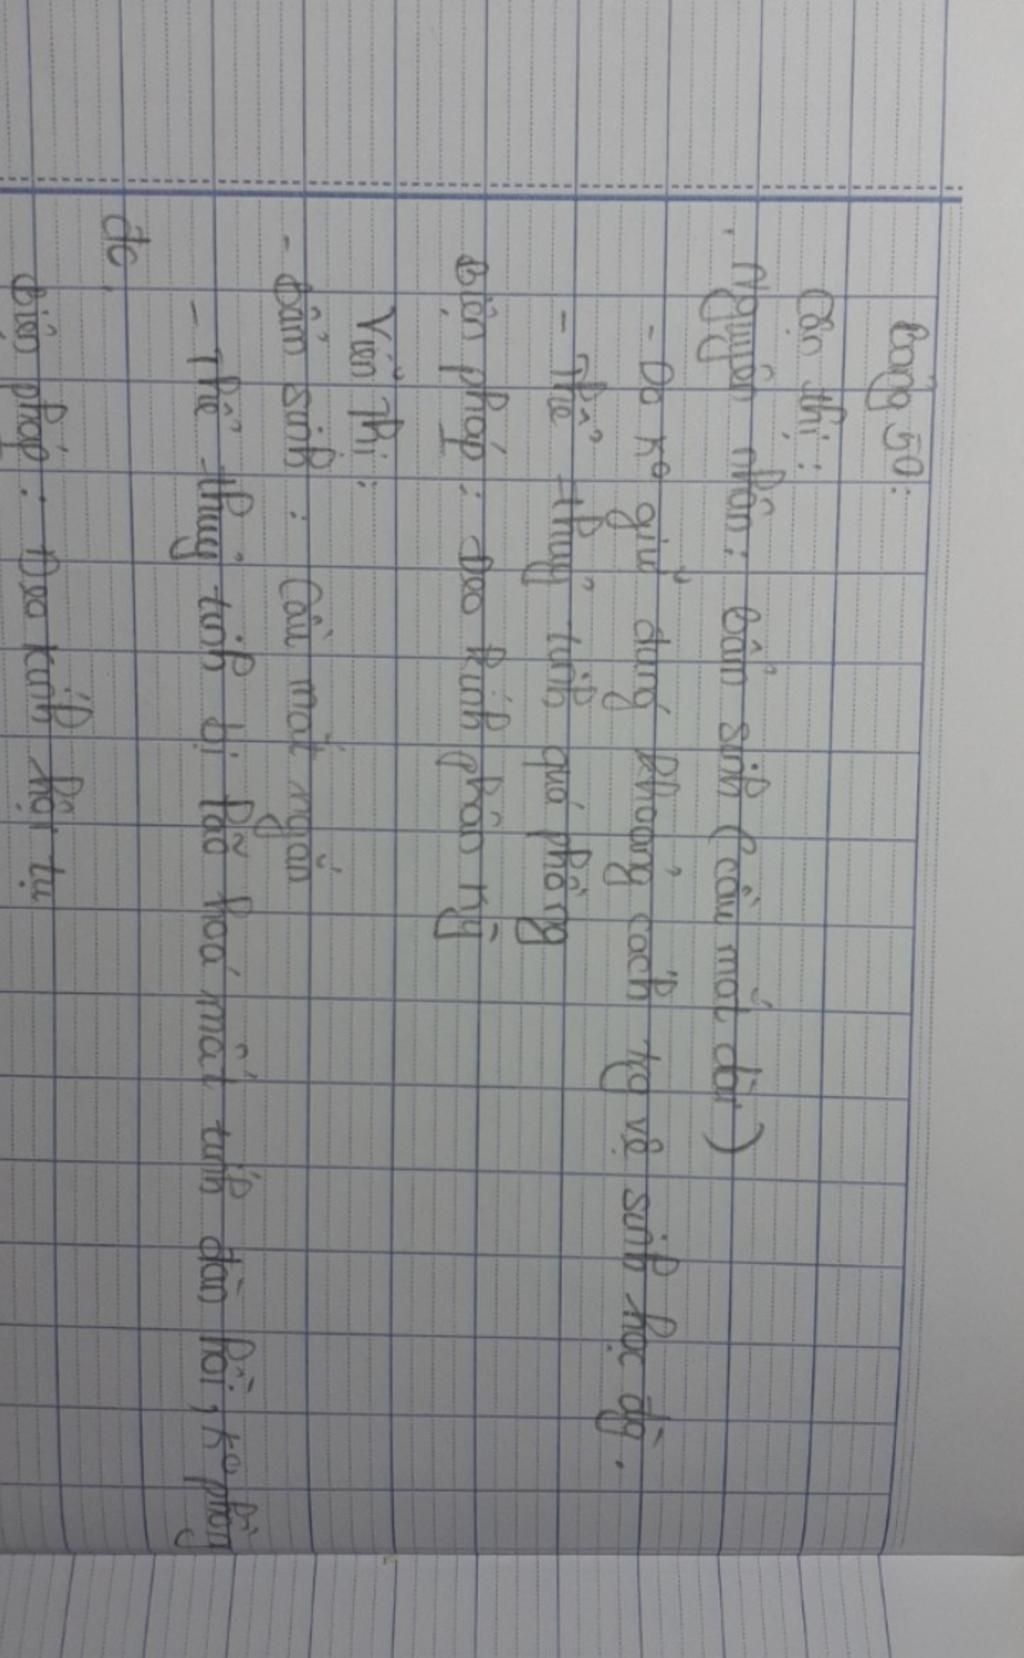 Bảng 50:
Cận thị:
. Nguyên nhân: bẩm sinh (cầu mắt dài)
- Do ko giữ đúng khoảng cách vệ sinh học đg.
- Thể thuỷ tinh quá phồng
Biện pháp: Đeo kính phân kỳ
Viễn thị:
- Bẩm sinh: Cầu mắt ngắn
- Thể thuỷ tinh bị lão hoá mất tính đàn hồi, ko phồng
đc.
Biện pháp: Đeo kính hội tụ